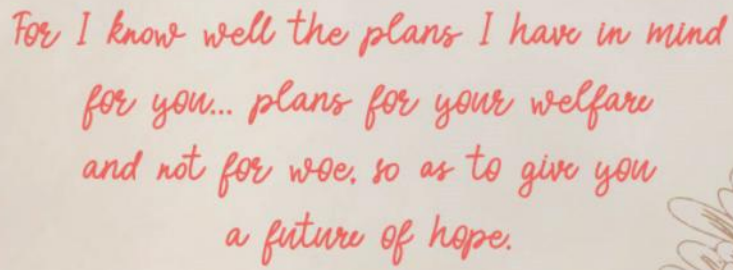 For I know well the plans I have in mind
for you... plans for your welfare
and not for woe, so as to give you
a future of hope.